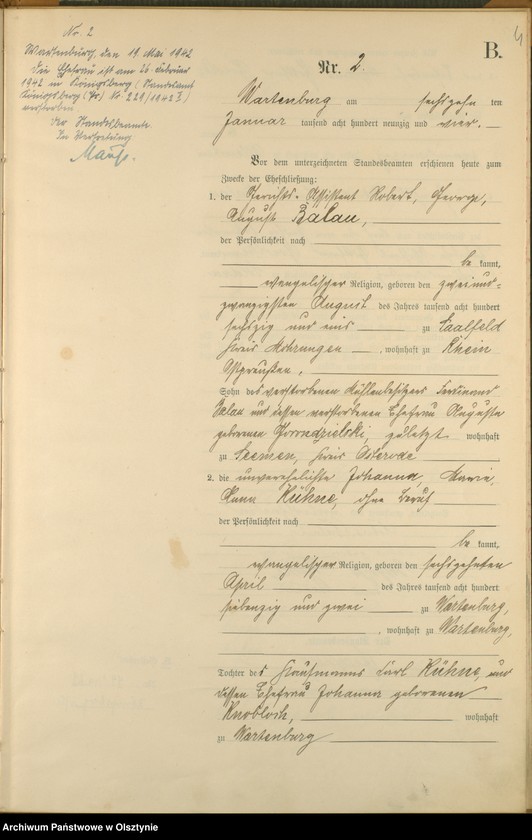 4
B.
Nr. 2
Wartenburg, den 19. Mai 1942
Die Ehefrau ist am 26. Februar
1942 in Königsberg (Standesamt
Königsberg (Pr) No 221/1942)
verstorben
Der Standesbeamte
In Vertretung
Nr. 2.
Wartenburg am sechszehn ten
Januar tausend acht hundert neunzig und vier.
Vor dem unterzeichneten Standesbeamten erschienen heute zum
Zwecke der Eheschließung:
1. der Gerichts-Assistent Robert, George,
August Balau,
der Persönlichkeit nach
be kannt,
evangelischer Religion, geboren den zweiund-
zwanzigsten August des Jahres tausend acht hundert
sechszig und eins zu Saalfeld
Kreis Mohrungen, wohnhaft zu Rhein
Ostpreußen,
Sohn des verstorbenen Mühlenbesitzers Ferdinand
Balau und dessen verstorbenen Ehefrau Auguste
geborenen zuletzt wohnhaft
zu Seemen, Kreis Osterode
2. die unverehelichte Johanna, Maria,
Anna Kühne, ohne Beruf
der Persönlichkeit nach
be kannt,
evangelischer Religion, geboren den sechszehnten
April des Jahres tausend acht hundert
siebenzig und zwei zu Wartenburg,
, wohnhaft zu Wartenburg,
Tochter des Kaufmanns Carl Kühne, und
dessen Ehefrau Johanna geborenen
Knobloch, wohnhaft
zu Wartenburg
Archiwum Państwowe w Olsztynie